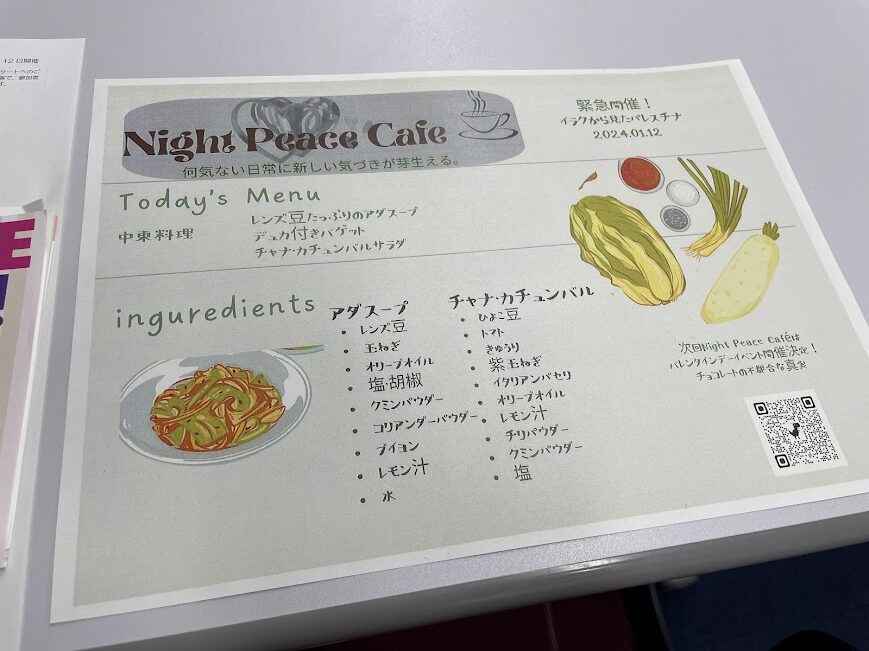 12日開催
Night Peace Cafe
何気ない日常に新しい気づきが芽生える。
緊急開催！
イラクから見たパレスチナ
2024.01.12
Today's Menu
中東料理
レンズ豆たっぷりのアダスープ
デュカ付きバゲット
チャナ・カチュンバルサラダ
inguredients
アダスープ
• レンズ豆
• 玉ねぎ
• オリーブオイル
• 塩・胡椒
• クミンパウダー
• コリアンダーパウダー
• ブイヨン
• レモン汁
• 水
チャナ・カチュンバル
• ひよこ豆
• トマト
• きゅうり
• 紫玉ねぎ
• イタリアンパセリ
• オリーブオイル
• レモン汁
• チリパウダー
• クミンパウダー
• 塩
次回Night Peace Caféは
バレンタインデーイベント開催決定！
チョコレートの不都合な真実